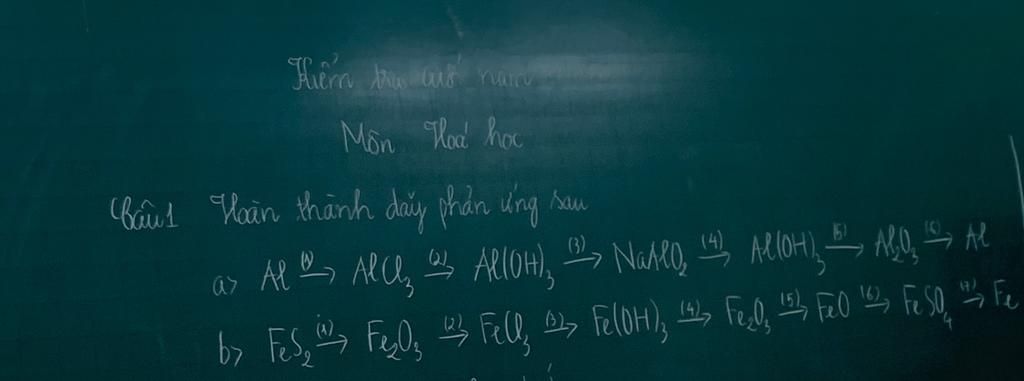 Kiểm tra cuối năm
Môn Hoá học
Câu 1 Hoàn thành dãy phản ứng sau
a> Al (1)→ AlCl₃ (2)→ Al(OH)₃ (3)→ NaAlO₂ (4)→ Al(OH)₃ (5)→ Al₂O₃ (6)→ Al
b> FeS₂ (1)→ Fe₂O₃ (2)→ FeCl₃ (3)→ Fe(OH)₃ (4)→ Fe₂O₃ (5)→ FeO (6)→ FeSO₄ (7)→ Fe